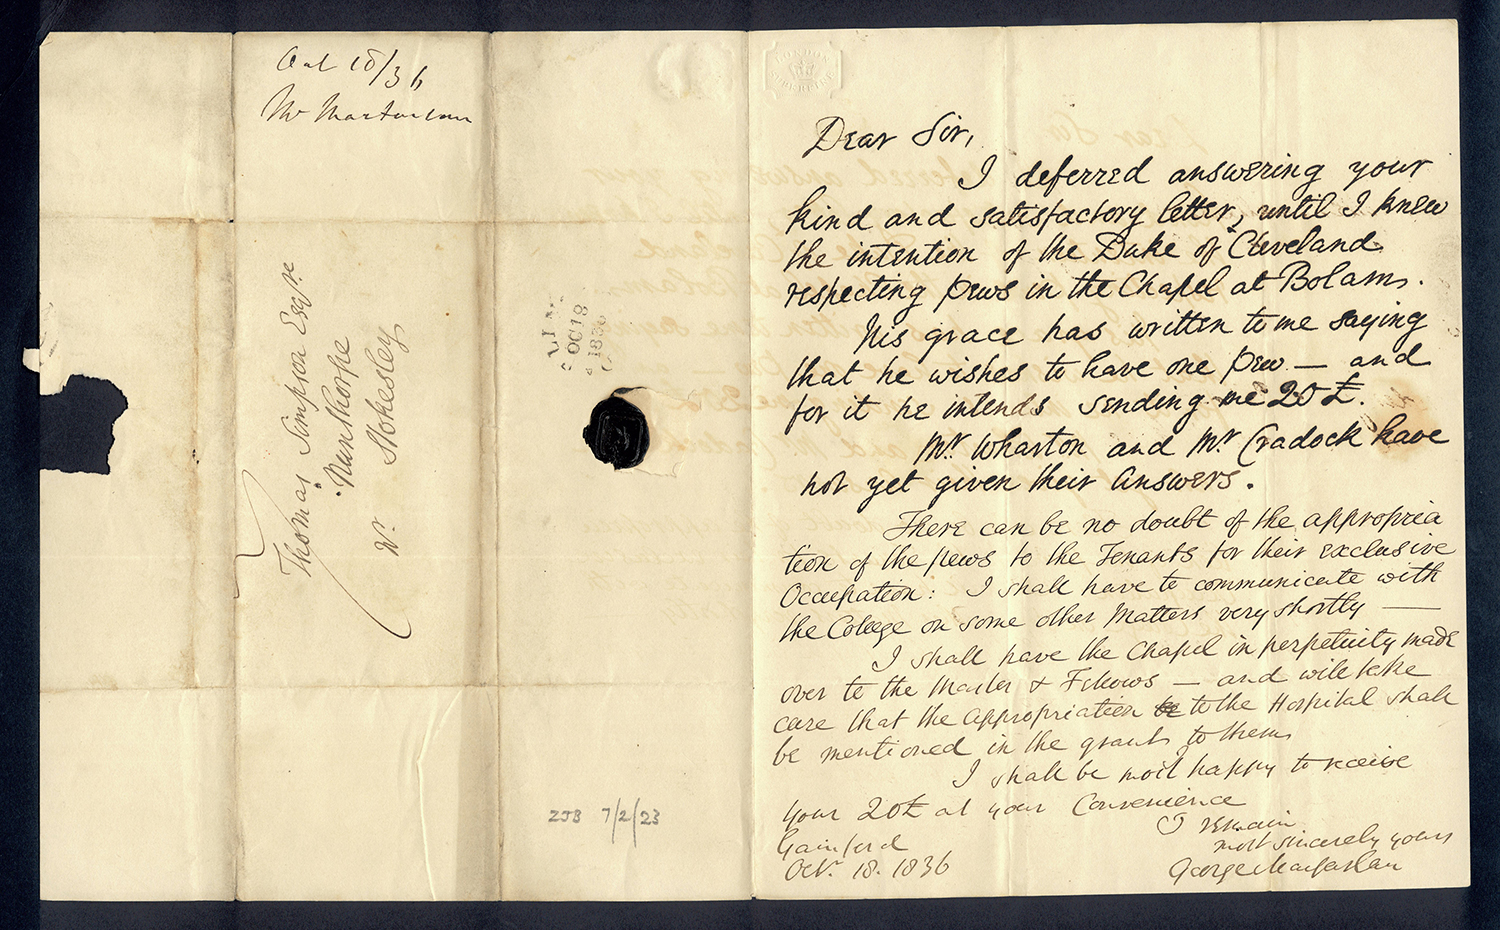 Oct 18/36
Mr Macfarlan
Thomas Simpson Esqre
Nunthorpe
Nr. Stokesley
OC18
1836
ZJB 7/2/23
LONDON
Dear Sir,
I deferred answering your
kind and satisfactory letter, until I knew
the intention of the Duke of Cleveland
respecting pews in the Chapel at Bolam.
His grace has written to me saying
that he wishes to have one pew — and
for it he intends sending me 20£.
Mr. Wharton and Mr. Cradock have
not yet given their answers.
There can be no doubt of the appropria
tion of the pews to the Tenants for their exclusive
Occupation: I shall have to communicate with
the College on some other Matters very shortly —
I shall have the Chapel in perpetuity made
over to the Master & Fellows — and will take
care that the appropriation to the Hospital shall
be mentioned in the grant to them
I shall be most happy to receive
your 20£ at your Convenience
I remain
most sincerely yours
George Macfarlan
Gainford
Octr. 18. 1836